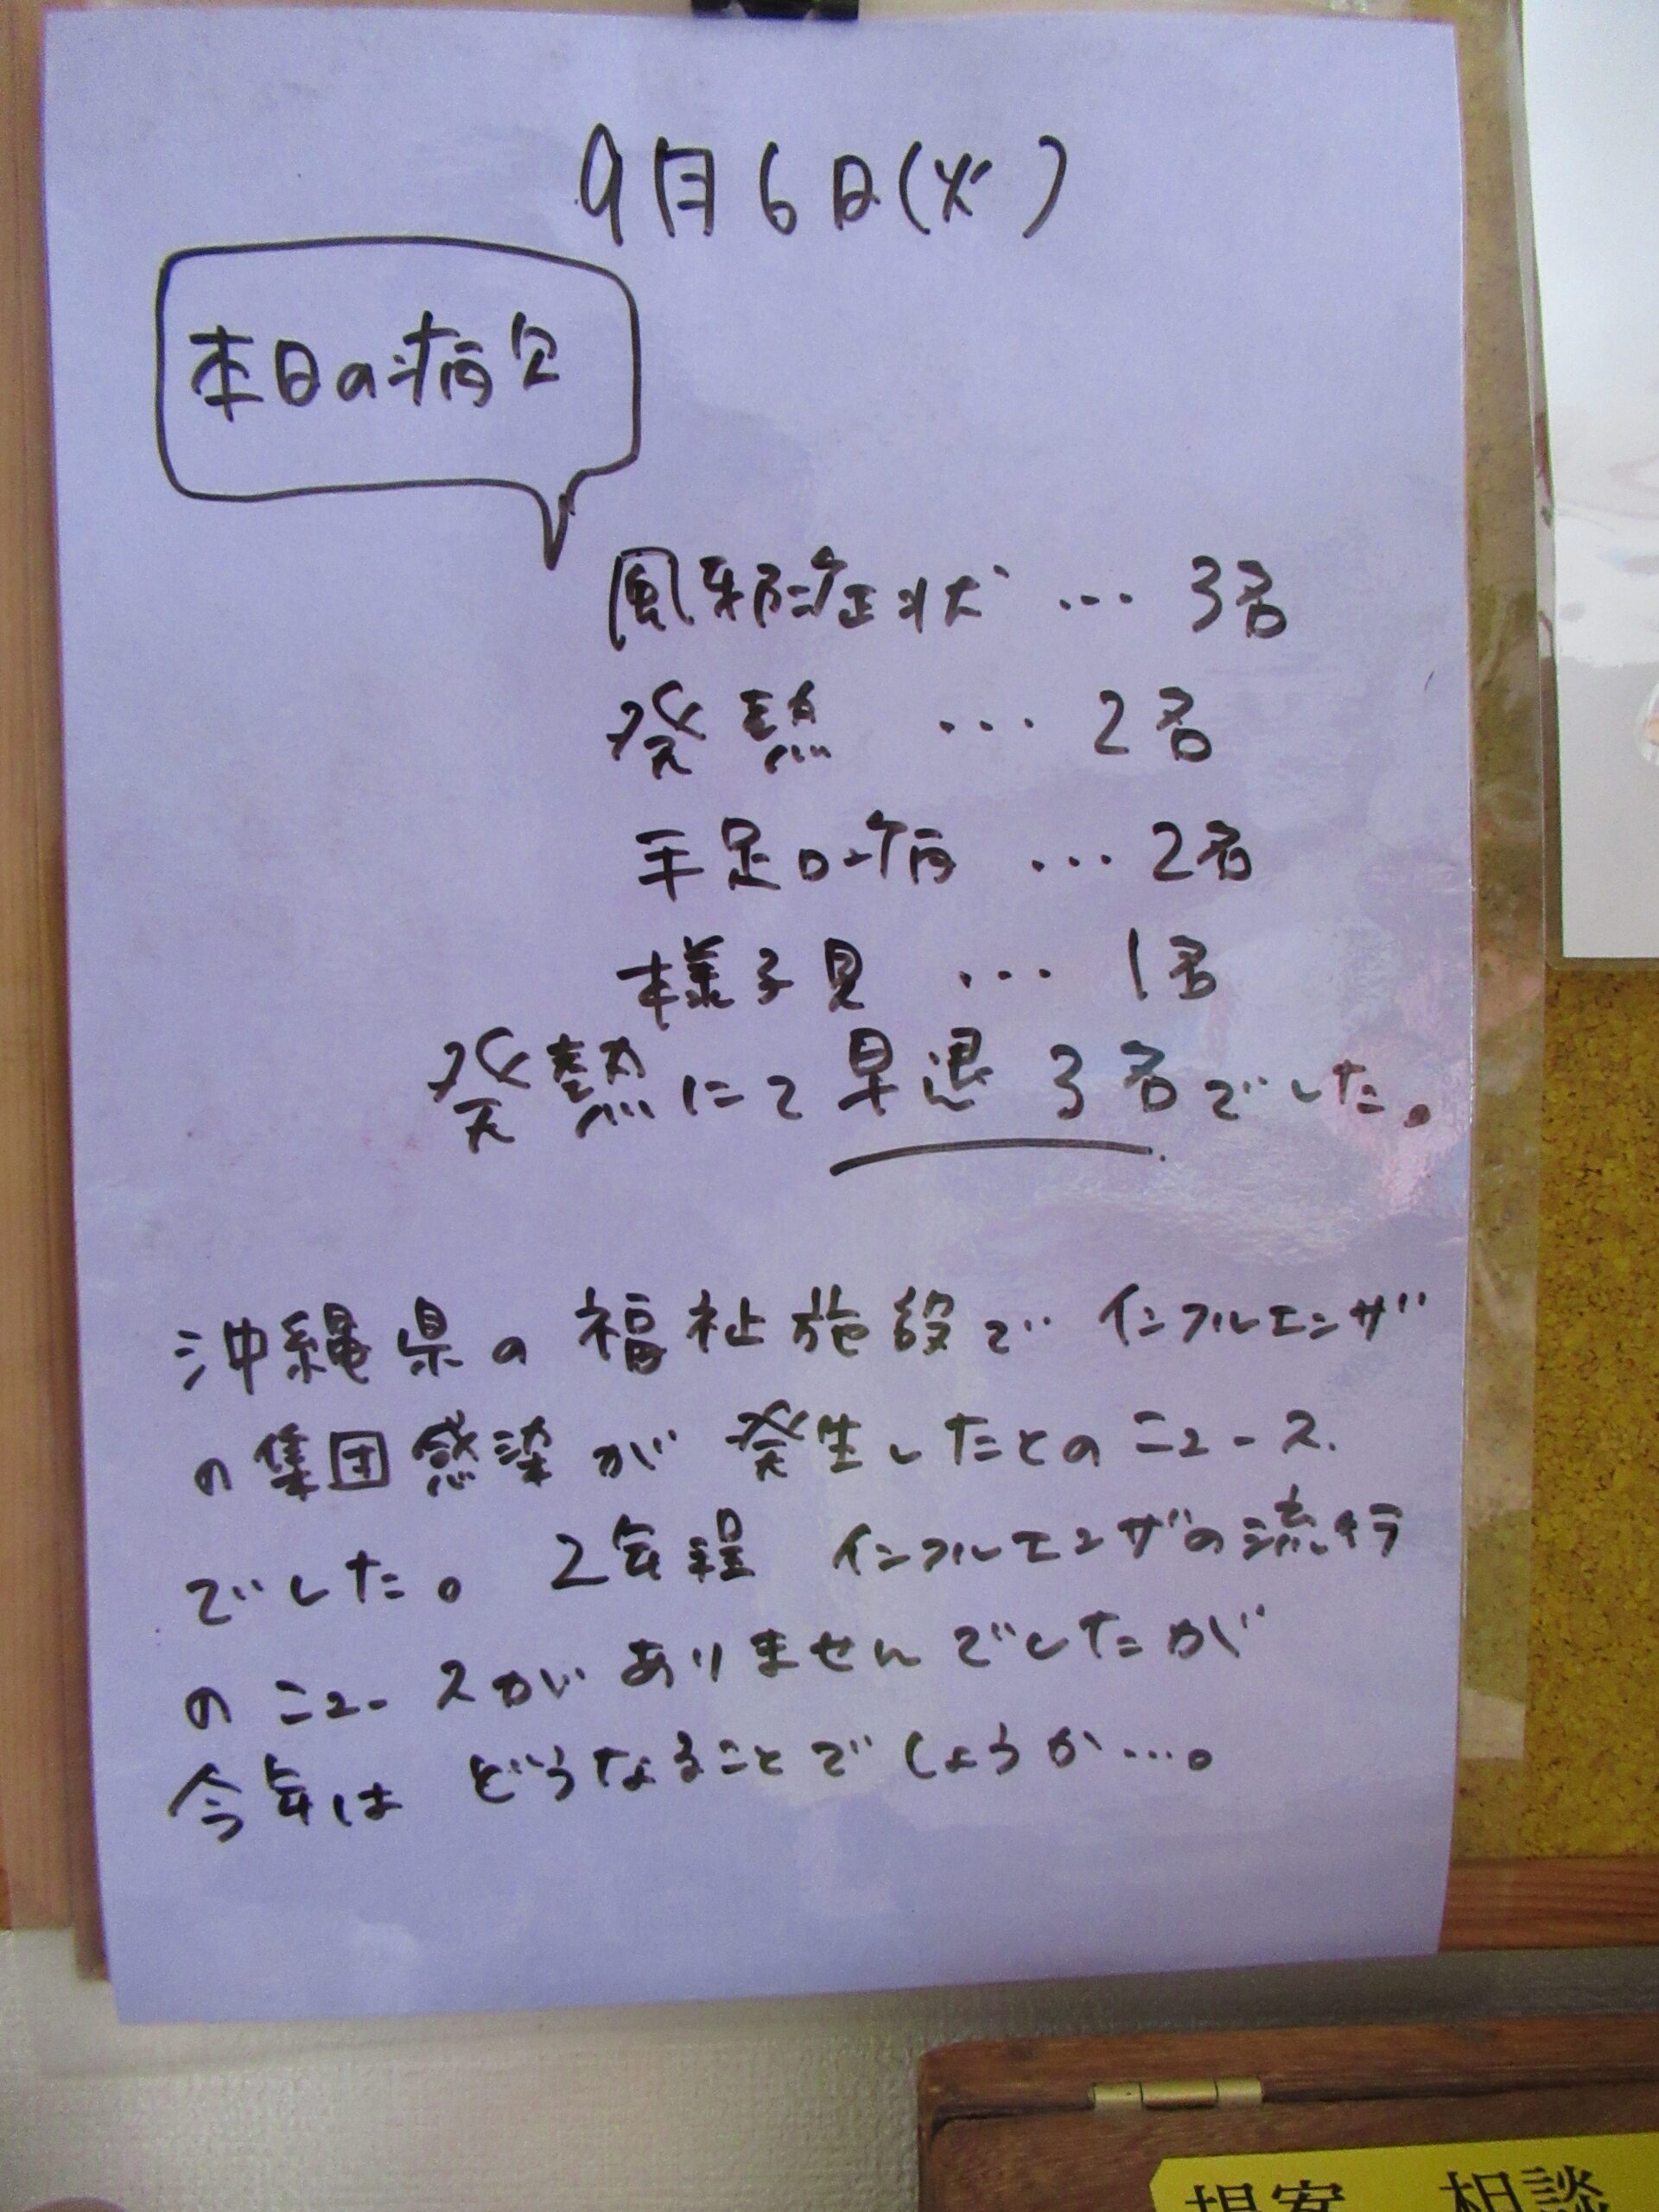 9月6日(火)
本日の病欠
風邪症状 … 3名
発熱 … 2名
手足口病 … 2名
様子見 … 1名
発熱にて早退 3名でした。
沖縄県の福祉施設でインフルエンザ
の集団感染が発生したとのニュース
でした。2年程 インフルエンザの流行
のニュースがありませんでしたが
今年は どうなることでしょうか…。
提案 相談